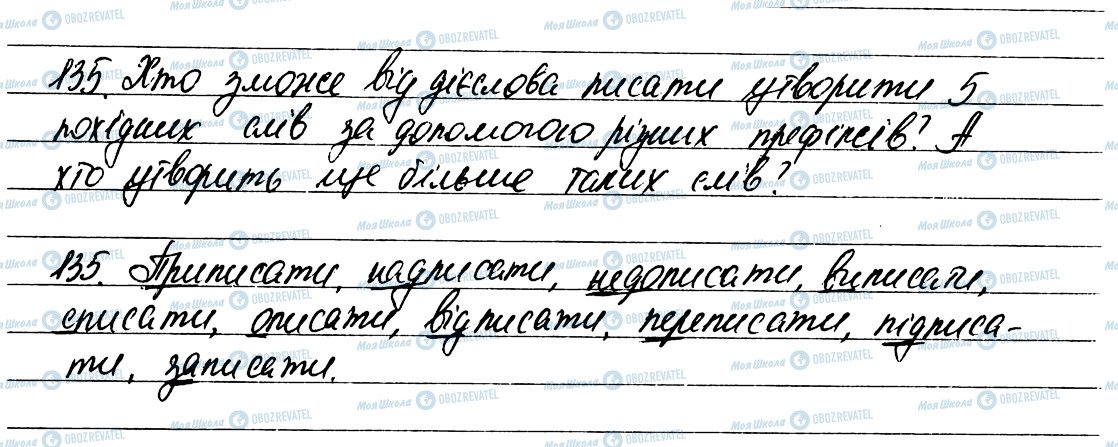 135. Хто зможе від дієслова писати утворити 5
похідних слів за допомогою різних префіксів? А
хто утворить ще більше таких слів?
135. Приписати, надписати, недописати, виписати,
списати, описати, відписати, переписати, підписа-
ти, записати.